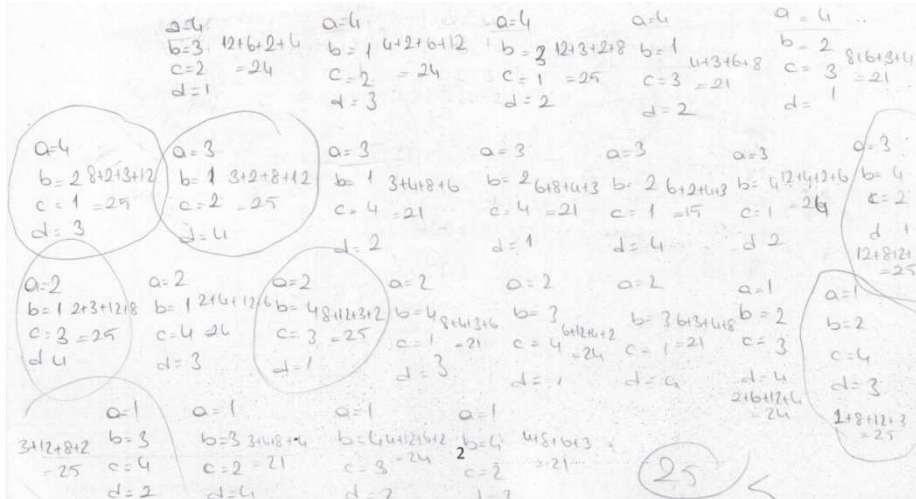 a=4
b=3 12+6+2+4
c=2 =24
d=1
a=4
b=1 4+2+6+12
c=2 =24
d=3
a=4
b=3 12+3+2+8
c=1 =25
d=2
a=4
b=1
c=3 4+3+6+8
=21
d=2
a=4
b=2
c=3 8+6+3+4
=21
d=1
a=4
b=2 8+2+3+12
c=1 =25
d=3
a=3
b=1 3+2+8+12
c=2 =25
d=4
a=3
b=1 3+4+8+6
c=4 =21
d=2
a=3
b=2 6+8+4+3
c=4 =21
d=1
a=3
b=2 6+2+4+3
c=1 =15
d=4
a=3
b=4 12+4+2+6
c=1 =24
d 2
a=3
b=4
c=2
d 1
12+8+2+
=25
a=2
b=1 2+3+12+8
c=3 =25
d 4
a=2
b=1 2+4+12+6
c=4 24
d=3
a=2
b=4 8+12+3+2
c=3 =25
d=1
a=2
b=4 8+4+3+6
c=1 =21
d=3
a=2
b=3
c=4 6+12+4+2
=24
d=1
a=2
b=3 6+3+4+8
c=1 =21
d=4
a=1
b=2
c=3
d=4
2+6+12+4
=24
a=1
b=2
c=4
d=3
2+8+12+3
=25
a=1
3+12+8+2 b=3
=25 c=4
d=2
a=1
b=3 3+4+8+
c=2 =21
d=4
a=1
b=4 4+12+6+2
c=3 =24
a=1
b=4 4+8+6+3
c=2 =21
2
25